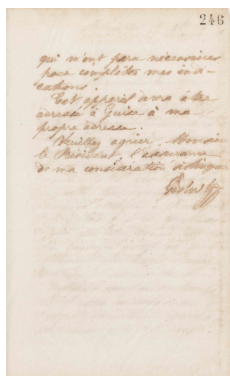 246
qui m'ont paru nécessaires
pour compléter mes indi-
cations.
Cet appareil devra être
adressé à Guise à ma
propre adresse.
Veuillez agréer, Monsieur
le Président l'assurance
de ma considération distinguée
Godin